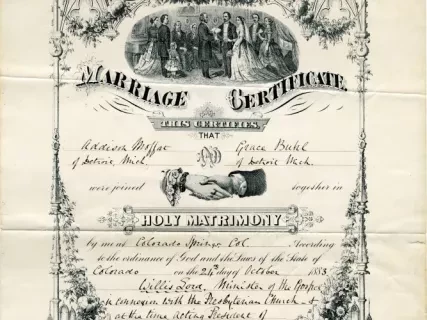 MARRIAGE CERTIFICATE.
THIS CERTIFIES,
THAT
Addison Moffat AND Grace Buhl
of Detroit, Mich. of Detroit Mich.
were joined together in
HOLY MATRIMONY
by me at Colorado Springs Col. According
to the ordinance of God and the Laws of the State of
Colorado on the 24th day of October 1883
Willis Lord, Minister of the Gospel
in connexion with the Presbyterian Church &
at the time Acting President of